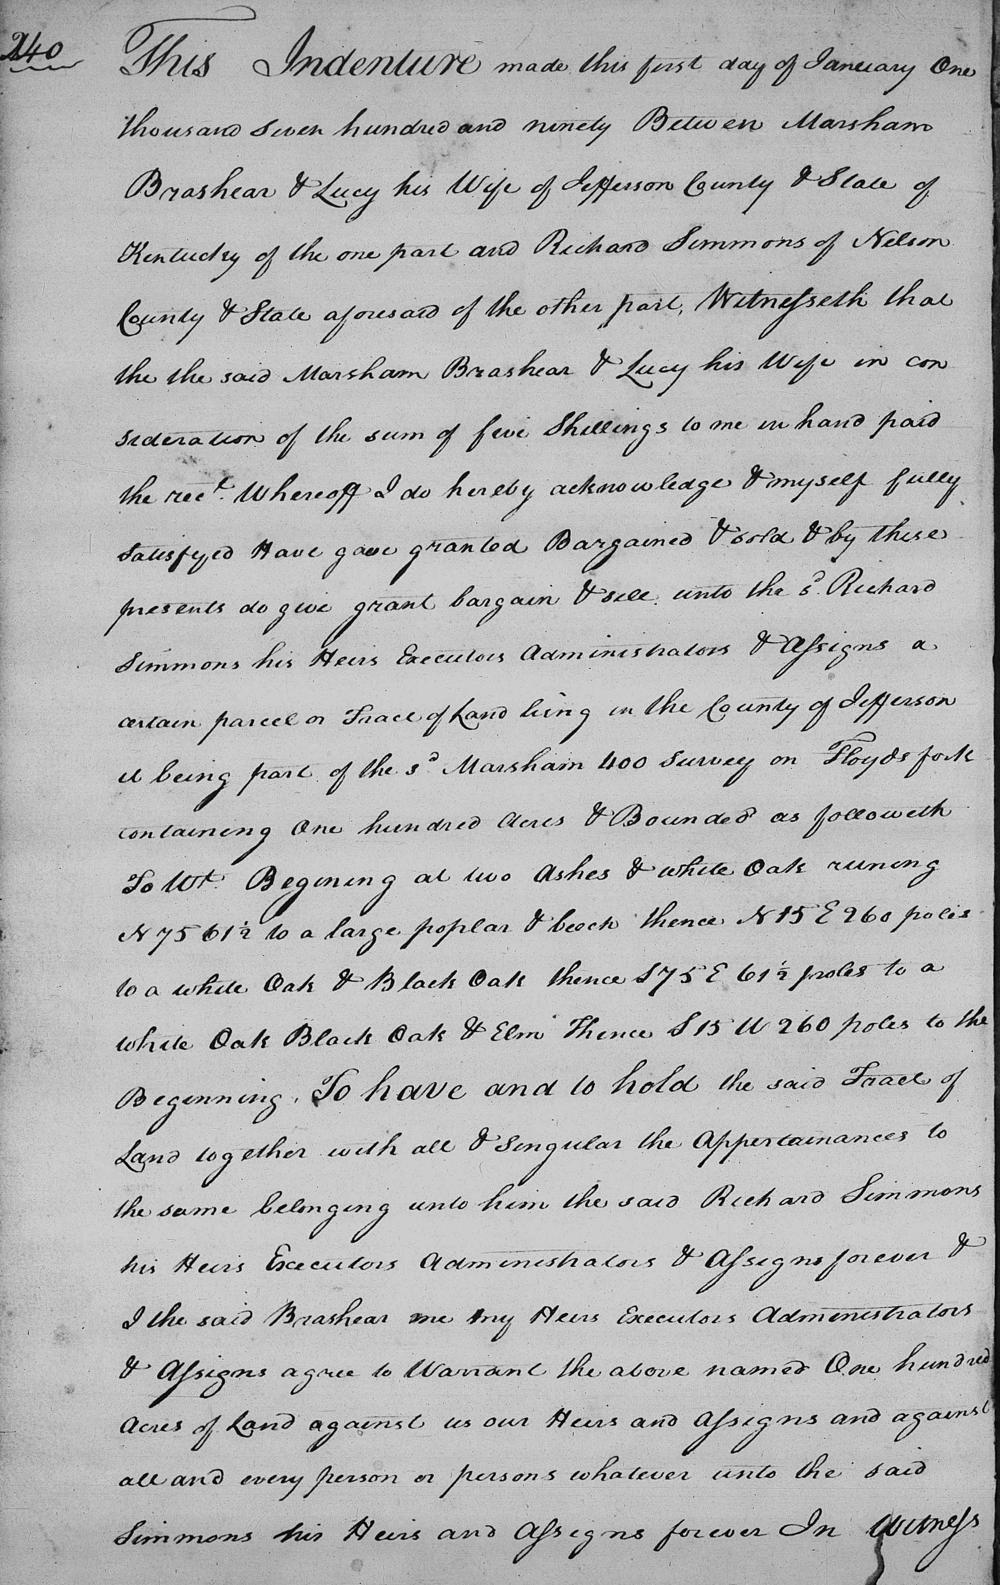 240
This Indenture made this first day of January One
thousand Seven hundred and ninety Between Marsham
Brashear & Lucy his Wife of Jefferson County & State of
Kentucky of the one part and Richard Simmons of Nelson
County & State aforesaid of the other part, Witnesseth that
the the said Marsham Brashear & Lucy his Wife in con
sideration of the sum of five Shillings to me in hand paid
the rect. Whereoff I do hereby acknowledge & myself fully
satisfyed Have gave granted Bargained & sold & by these
presents do give grant bargain & sell unto the sd. Richard
Simmons his Heirs Executors Administrators & Assigns a
certain parcel or Tract of Land lieing in the County of Jefferson
it being part of the sd Marsham 400 Survey on Floyds fork
containing One hundred Acres & Bounded as followeth
To Wt. Begining at two Ashes & white Oak runing
N 75 61½ to a large poplar & beech thence N 15 E 260 poles
to a white Oak & Black Oak thence S 75 E 61½ poles to a
white Oak Black Oak & Elm Thence S 15 W 260 poles to the
Beginning, To have and to hold the said Tract of
Land together with all & Singular the Appertainances to
the same belonging unto him the said Richard Simmons
his Heirs Executors Administrators & Assigns forever &
I the said Brashear me my Heirs Executors Administrators
& Assigns agree to Warrant the above named One hundred
Acres of Land against us our Heirs and Assigns and against
all and every person or persons whatever unto the said
Simmons his Heirs and Assigns forever In Witness